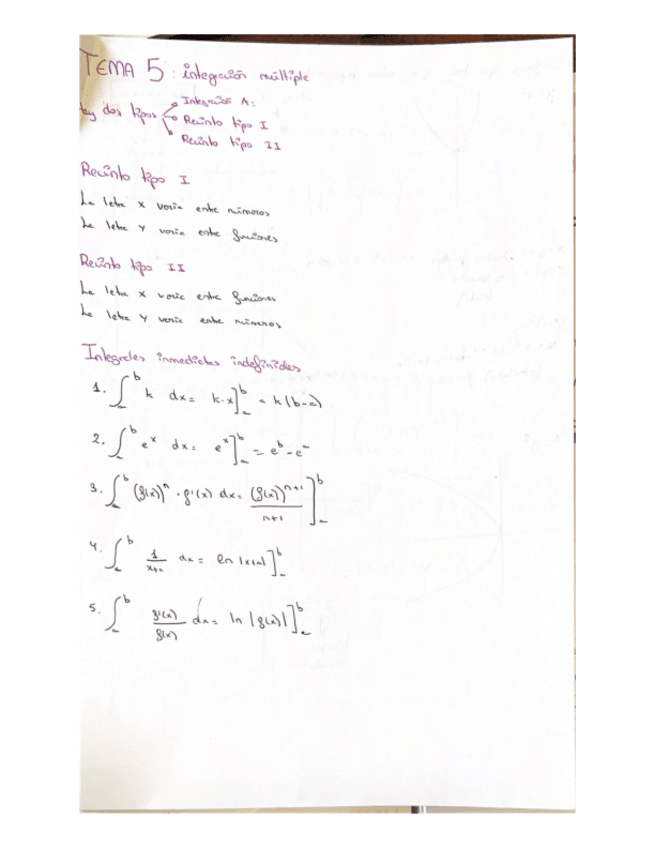 TEMA 5: integración múltiple
Hay dos tipos
Integración A:
Recinto tipo I
Recinto tipo II
Recinto tipo I
La letra x varia entre números
La letra y varia entre funciones
Recinto tipo II
La letra x varia entre funciones
La letra y varia entre números
Integrales inmediatas indefinidas
1. ∫_a^b k dx = k·x]_a^b = k(b-a)
2. ∫_a^b e^x dx = e^x]_a^b = e^b - e^a
3. ∫_a^b (f(x))^n · f'(x) dx = (f(x))^{n+1}/(n+1)]_a^b
4. ∫_a^b 1/(x+a) dx = ln|x+a|]_a^b
5. ∫_a^b f'(x)/f(x) dx = ln|f(x)|]_a^b